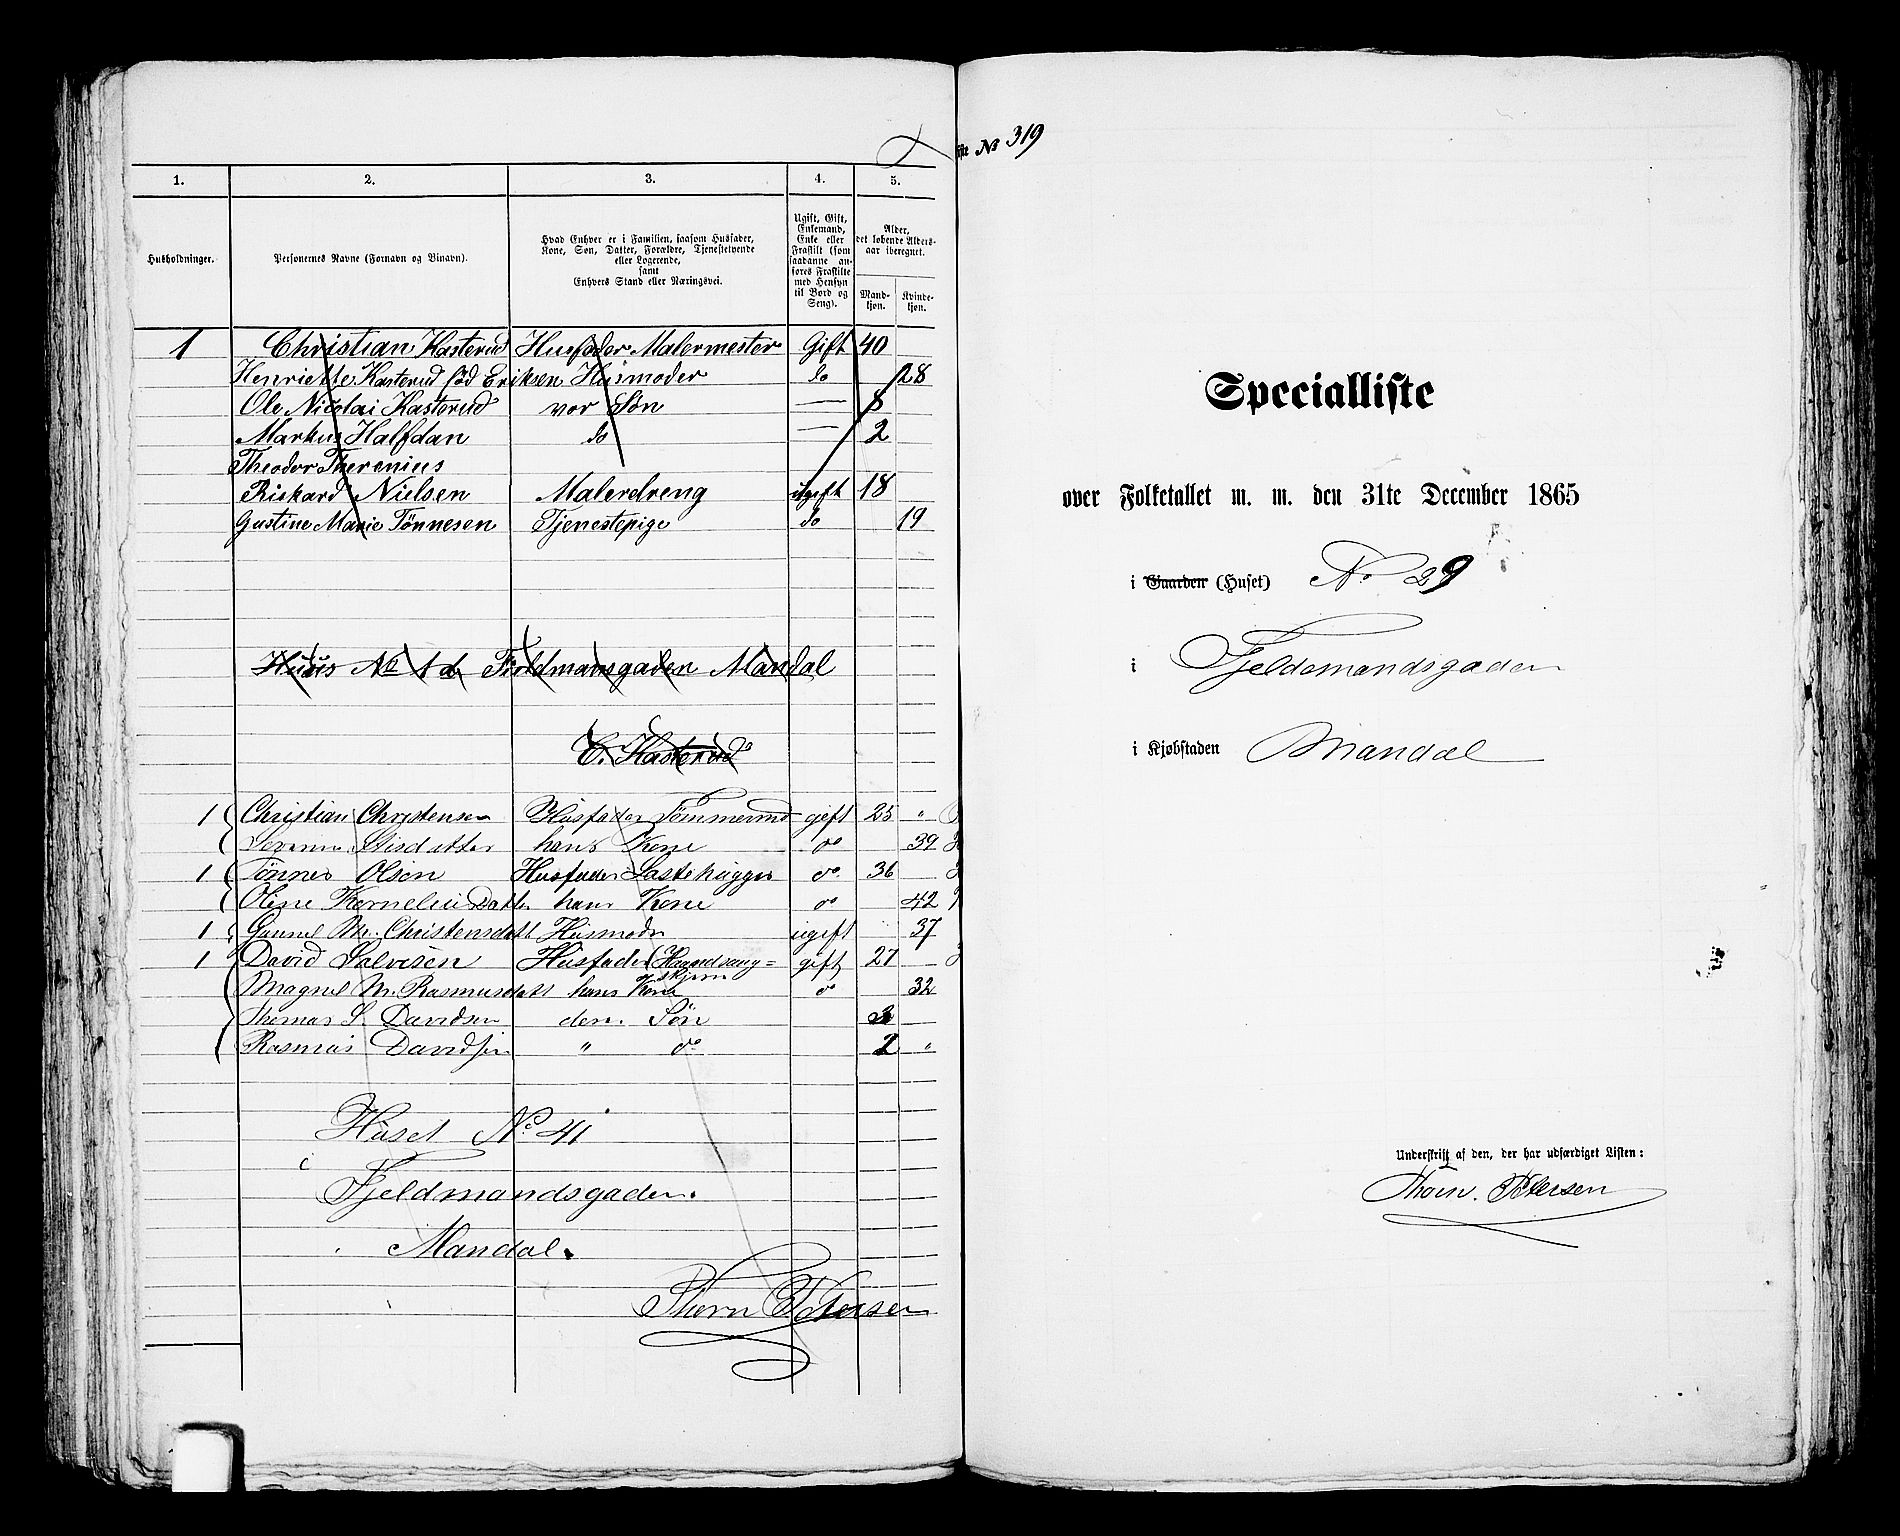 1.
2.
3.
4.
5.
Husholdninger.
Personernes Navne (Fornavn og Binavn).
Hvad Enhver er i Familien, saasom Husfader,
Kone, Søn, Datter, Forældre, Tjenestetyende
eller Logerende,
samt
Enhvers Stand eller Næringsvei.
Ugift, Gift,
Enkemand,
Enke eller
Fraskilt (som
saadanne an-
føres Fraskilte
med Hensyn
til Bord og
Seng).
Alder,
det løbende Alders-
aar iberegnet.
Mand-
kjøn.
Kvinde-
kjøn.
1 Christian Kasterud Husfader Malermester Gift 40
Henriette Kasterud fød Eriksen Husmoder do 28
Ole Nicolai Kasterud vor Søn — 8
Markus Halfdan do — 2
Theodor Therenius
Rickard Nielsen Malerdreng ugift 18
Gustine Marie Tønnesen Tjenestepige do 19
Huus No 1 d Fieldmansgaden Mandal
C. Kasterud
1 Christian Christensen Husfader Tømmermd gift 25 "
hans Kone do 39
1 Tønnes Olsen Husfader do. 36
Oline Kornelius Datt. hans Kone do 42
1 Gunnel Christensdatt Husmodr ugift 37
1 David Salvesen Husfader gift 27
Magnel M. Rasmusdatt hans Kone do 32
Thomas S. Davidsen dere. Søn 3
Rasmus Davidsen " do 2 "
Huset No. 41
i
Fjeldmandsgaden.
Mandal.
Thorn Petersen
iste No 319
Specialliste
over Folketallet m. m. den 31te December 1865
i Gaarden (Huset) No. 29
i Fjeldemandsgaden
i Kjøbstaden Mandal
Underskrift af den, der har udfærdiget Listen:
Thorn. Petersen